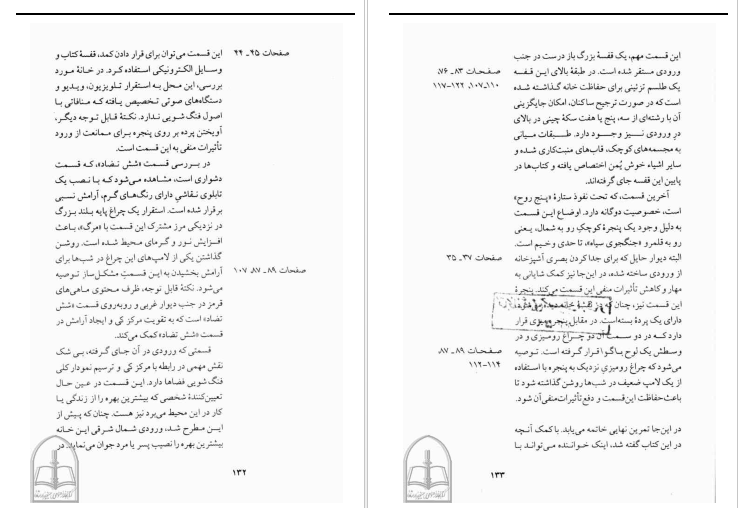 این قسمت می‌توان برای قرار دادن کمد، قفسهٔ کتاب و
صفحات ۴۵ـ ۴۴
وسایل الکترونیکی استفاده کرد. در خانهٔ مورد
بررسی، این محل به استقرار تلویزیون، ویدیو و
دستگاه‌های صوتی تخصیص یافته که منافاتی با
اصول فنگ شویی ندارد. نکتهٔ قابل توجه دیگر،
آویختن پرده بر روی پنجره برای ممانعت از ورود
تأثیرات منفی به این قسمت است.
در بررسی قسمت «شش تضاد»، که قسمت
دشواری است، مشاهده می‌شود که با نصب یک
تابلوی نقاشی دارای رنگ‌های گرم، آرامش نسبی
برقرار شده است. استقرار یک چراغ پایه بلند بزرگ
در نزدیکی مرز مشترک این قسمت با «مرگ»، باعث
افزایش نور و گرمای محیط شده است. روشن
گذاشتن یکی از لامپ‌های این چراغ در شب‌ها برای
آرامش بخشیدن به این قسمتِ مشکل‌ساز توصیه
صفحات ۸۹ـ ۸۷، ۱۰۷
می‌شود. نکتهٔ قابل توجه، ظرف محتوی ماهی‌های
قرمز در جنب دیوار غربی و روبه‌روی قسمت «شش
تضاد» است که به تقویت مرکز کی و ایجاد آرامش در
قسمت «شش تضاد» کمک می‌کند.
قسمتی که ورودی در آن جای گرفته، بی شک
نقش مهمی در رابطه با مرکز کی و ترسیم نمودار کلی
فنگ شویی فضاها دارد. این قسمت در عین حال
تعیین‌کنندهٔ شخصی که بیشترین بهره را از زندگی یا
کار در این محیط می‌برد نیز هست. چنان که پیش از
این مطرح شد، ورودی شمال شرقی این خانه
بیشترین بهره را نصیب پسر یا مرد جوان می‌نماید. در
۱۳۲
این قسمت مهم، یک قفسهٔ بزرگ باز درست در جنب
ورودی مستقر شده است. در طبقهٔ بالای این قفسه
صفحات ۸۳ـ ۷۶،
یک طلسم تزئینی برای حفاظت خانه گذاشته شده
۱۱۰ـ۱۰۷، ۱۲۲–۱۱۷
است که در صورت ترجیح ساکنان، امکان جایگزینی
آن با رشته‌ای از سه، پنج یا هفت سکهٔ چینی در بالای
درِ ورودی نیز وجود دارد. طبقات میانی
به مجسمه‌های کوچک، قاب‌های منبت‌کاری شده و
سایر اشیاء خوش یُمن اختصاص یافته و کتاب‌ها در
پایین این قفسه جای گرفته‌اند.
آخرین قسمت، که تحت نفوذ ستارهٔ «پنج روح»
است، خصوصیت دوگانه دارد. اوضاع این قسمت
به دلیل وجود یک پنجرهٔ کوچک رو به شمال، یعنی
رو به قلمرو «جنگجوی سیاه»، تا حدی وخیم است.
البته دیوار حایل که برای جدا کردن بصری آشپزخانه
صفحات ۳۷ـ ۳۵
از ورودی ساخته شده، در این‌جا نیز کمک شایانی به
مهار و کاهش تأثیرات منفی این قسمت می‌کند. پنجرهٔ
این قسمت نیز، چنان که در نقشهٔ خانه دیده می‌شود،
دارای یک پردهٔ بسته‌است. در مقابل پنجره، میزی قرار
دارد که در دو سمت آن دو چراغ رومیزی و در
وسطش یک لوح باگوا قرار گرفته است. توصیه
صفحات ۸۹ـ ۸۷،
می‌شود که چراغ رومیزیِ نزدیک به پنجره با استفاده
۱۱۴–۱۱۲
از یک لامپ ضعیف در شب‌ها روشن گذاشته شود تا
باعث حفاظت این قسمت و دفع تأثیرات منفی آن شود.
در این‌جا تمرین نهایی خاتمه می‌یابد. با کمک آنچه
در این کتاب گفته شد، اینک خواننده می‌تواند با
۱۳۳